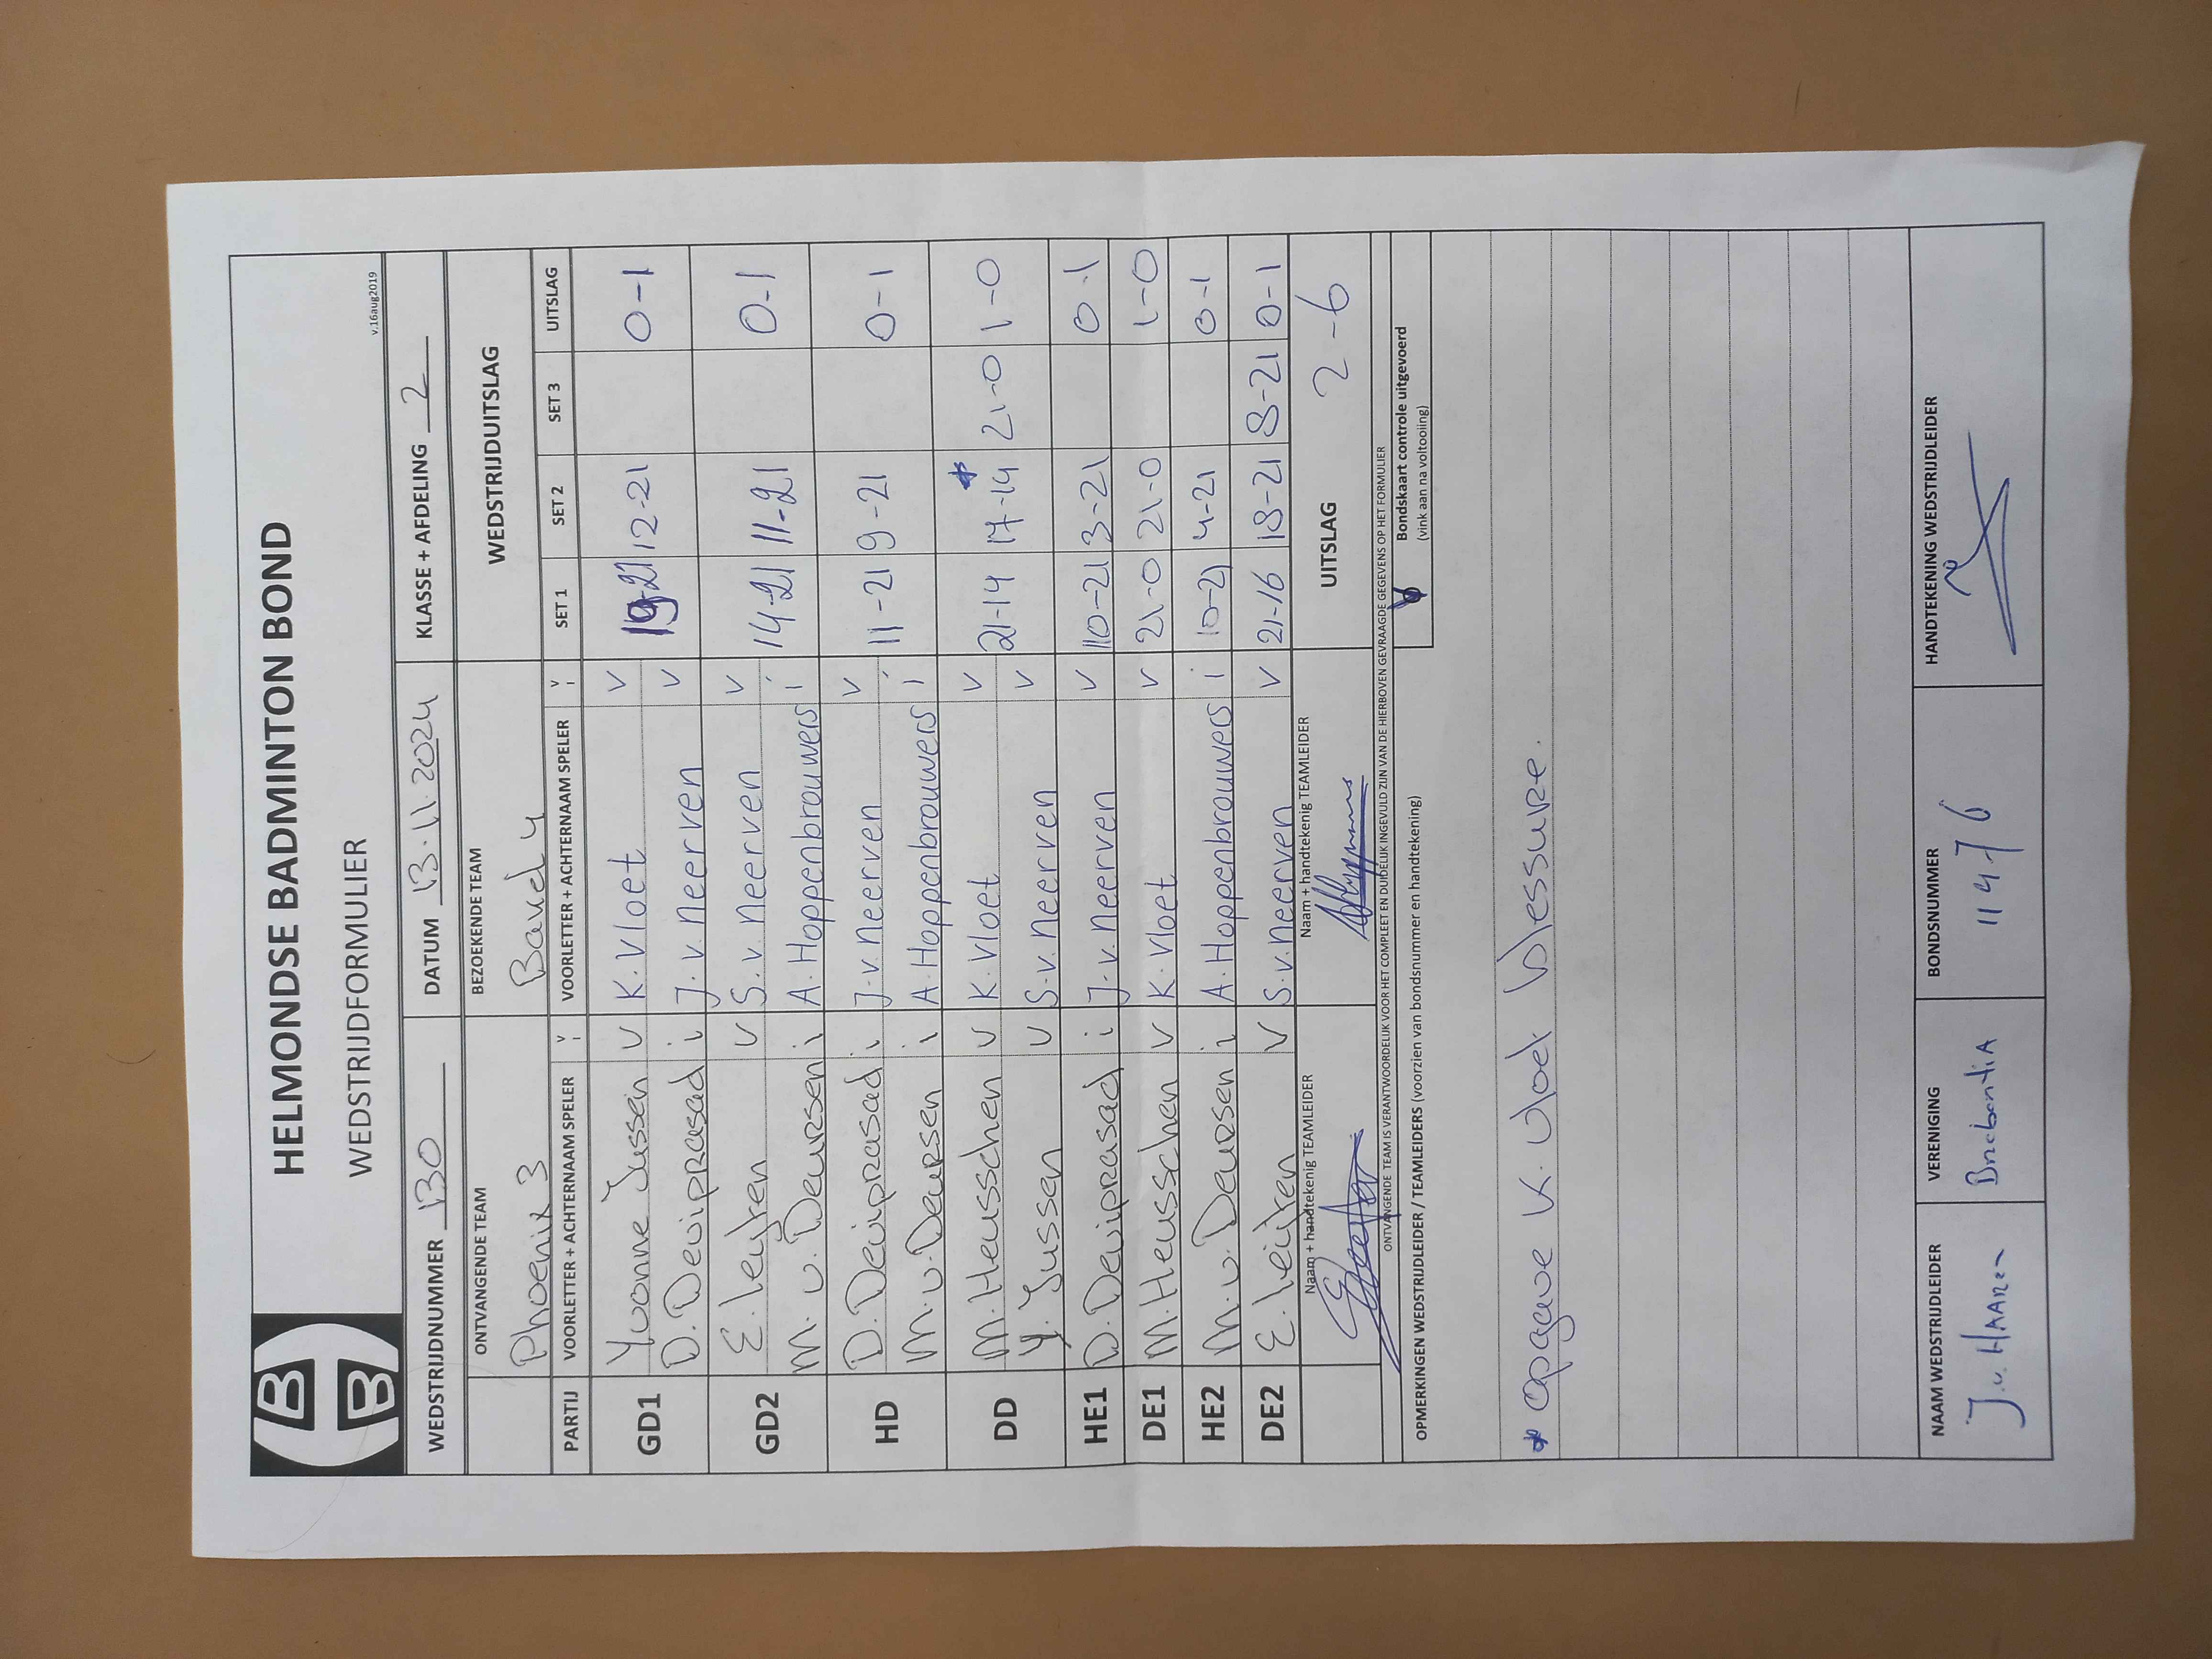 HELMONDSE BADMINTON BOND
WEDSTRIJDFORMULIER
v.16aug2019
WEDSTRIJDNUMMER 130 DATUM 13.11.2024 KLASSE + AFDELING 2
ONTVANGENDE TEAM BEZOEKENDE TEAM WEDSTRIJDUITSLAG
Phoenix 3 Bavel 4
PARTIJ VOORLETTER + ACHTERNAAM SPELER V I VOORLETTER + ACHTERNAAM SPELER V I SET 1 SET 2 SET 3 UITSLAG
GD1 Yvonne Jussen v K. Vloet v 19-21 12-21 0-1
D. Deviprasad i J. v. Neerven v
GD2 E. v S. v. Neerven v 14-21 11-21 0-1
M. v. Deursen i A. Hoppenbrouwers i
HD D. Deviprasad i J. v. Neerven v 11-21 9-21 0-1
M. v. Deursen i A. Hoppenbrouwers i
DD M. Heusschen v K. Vloet v 21-14 17-14 * 21-0 1-0
Y. Jussen v S. v. Neerven v
HE1 D. Deviprasad i J. v. Neerven v 10-21 3-21 0-1
DE1 M. Heusschen v K. Vloet v 21-0 21-0 1-0
HE2 M. v. Deursen i A. Hoppenbrouwers i 10-21 4-21 0-1
DE2 E. v S. v. Neerven v 21-16 18-21 8-21 0-1
Naam + handtekenig TEAMLEIDER Naam + handtekenig TEAMLEIDER UITSLAG 2-6
ONTVANGENDE TEAM IS VERANTWOORDELIJK VOOR HET COMPLEET EN DUIDELIJK INGEVULD ZIJN VAN DE HIERBOVEN GEVRAAGDE GEGEVENS OP HET FORMULIER
OPMERKINGEN WEDSTRIJDLEIDER / TEAMLEIDERS (voorzien van bondsnummer en handtekening) V Bondskaart controle uitgevoerd
(vink aan na voltooiing)
* opgave K. Vloet blessure.
NAAM WEDSTRIJDLEIDER VERENIGING BONDSNUMMER HANDTEKENING WEDSTRIJDLEIDER
J. v. HAAREN BrabantiA 11476